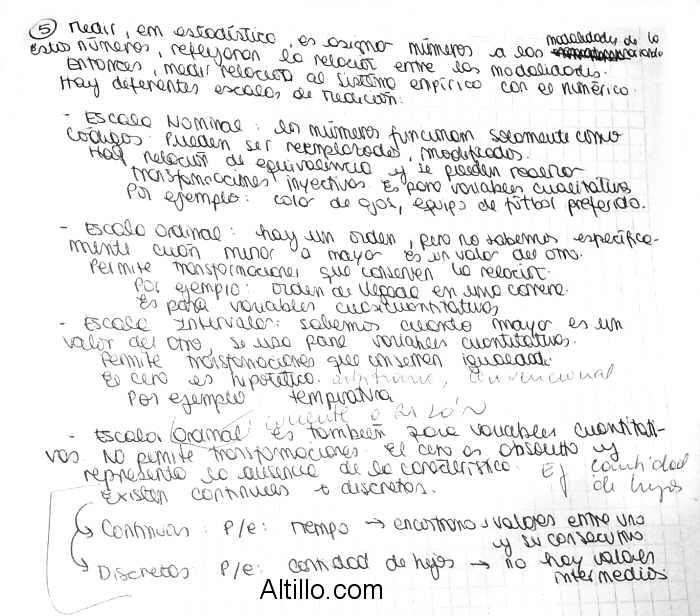 5 Medir, em estadística, es asignar números a las modalidades de la variable
Estos números, reflejaran la relación entre las modalidades.
Entonces, medir relaciona al sistema empírico con el numérico.
Hay deferentes escalas de medición:
- Escala Nominal: los números funcionan solamente como
códigos. Pueden ser reemplazados, modificados.
Hay relación de equivalencia y se pueden realizar
transformaciones inyectivas. Es para variables cualitativas
Por ejemplo: color de ojos, equipo de fútbol preferido.
- Escala Ordinal: hay un orden, pero no sabemos específica-
mente cuán menor o mayor es un valor del otro.
Permite transformaciones que conserven la relación.
Por ejemplo: orden de llegada en una carrera.
Es para variables cuasicuantitativas
- Escala Intervalar: sabemos cuando mayor es un
valor del otro, se usa para variables cuantitativas.
Permite transformaciones que conserven igualdad.
El cero es hipotético. arbitrario, convencional
Por ejemplo temperatura
cociente o RAZÓN
- Escala es también para variables cuantitati-
vas No permite transformaciones. El cero es absoluto y
representa la ausencia de la característica. Ej cantidad
de hijos
Existen continuas o discretas.
Continuas: P/e: tiempo → encontramos valores entre uno
y su consecutivo
Discretas: P/e: cantidad de hijos → no hay valores
intermedios
Altillo.com